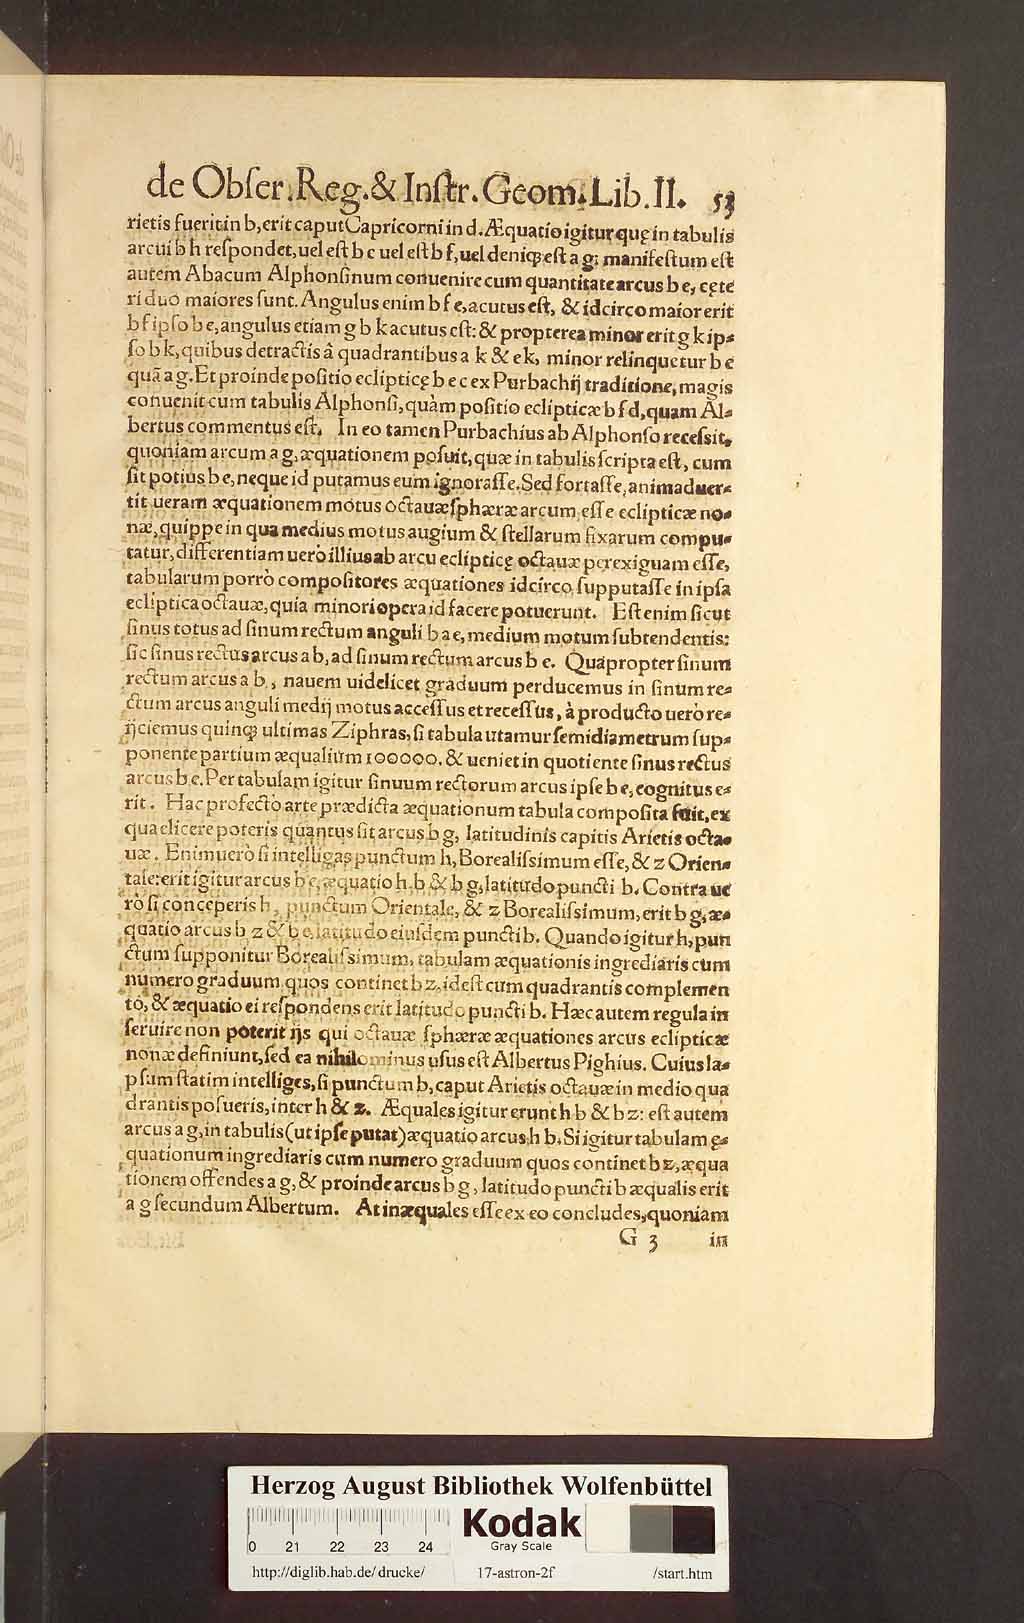 de Obſer. Reg. & Inſtr. Geom. Lib. II. 53
rietis fuerit in b, erit caput Capricorni in d. Æquatio igitur quę in tabulis
arcui b h reſpondet, uel eſt b c uel eſt b f, uel deniqꝫ eſt a g: manifeſtum eſt
autem Abacum Alphonſinum conuenire cum quantitate arcus b e, cęte
ri duo maiores ſunt. Angulus enim b f e, acutus eſt, & idcirco maior erit
b f ipſo b e, angulus etiam g b k acutus eſt: & propterea minor erit g k ip⸗
ſo b k, quibus detractis à quadrantibus a k & e k, minor relinquetur b e
quā a g. Et proinde poſitio eclipticę b e c ex Purbachij traditione, magis
conuenit cum tabulis Alphonſi, quàm poſitio eclipticæ b f d, quam Al⸗
bertus commentus eſt. In eo tamen Purbachius ab Alphonſo receſsit,
quoniam arcum a g, æquationem poſuit, quæ in tabulis ſcripta eſt, cum
ſit potius b e, neque id putamus eum ignoraſſe. Sed fortaſſe, animaduer⸗
tit ueram æquationem motus octauæ ſphæræ arcum eſſe eclipticæ no⸗
næ, quippe in qua medius motus augium & ſtellarum fixarum compu⸗
tatur, differentiam uerò illius ab arcu eclipticę octauæ perexiguam eſſe,
tabularum porrò compoſitores æquationes idcirco ſupputaſſe in ipſa
ecliptica octauæ, quia minori opera id facere potuerunt. Eſt enim ſicut
ſinus totus ad ſinum rectum anguli b a e, medium motum ſubtendentis:
ſic ſinus rectus arcus a b, ad ſinum rectum arcus b e. Quapropter ſinum
rectum arcus a b, nouem uidelicet graduum perducemus in ſinum re⸗
ctum arcus anguli medij motus acceſſus et receſſus, à producto uerò re⸗
ijciemus quinqꝫ ultimas Ziphras, ſi tabula utamur ſemidiametrum ſup⸗
ponente partium æqualium 100000. & ueniet in quotiente ſinus rectus
arcus b e. Per tabulam igitur ſinuum rectorum arcus ipſe b e, cognitus e⸗
rit. Hac profectò arte prædicta æquationum tabula compoſita fuit, ex
qua elicere poteris quantus ſit arcus b g, latitudinis capitis Arietis octa⸗
uæ. Enimuerò ſi intelligas punctum h, Borealiſsimum eſſe, & z Orien⸗
tale: erit igitur arcus b e, æquatio h b & b g, latitudo puncti b. Contra ue
rò ſi conceperis h, punctum Orientale, & z Borealiſsimum, erit b g, æ⸗
quatio arcus b z & b e, latitudo eiuſdem puncti b. Quando igitur h, pun
ctum ſupponitur Borealiſsimum, tabulam æquationis ingrediaris cum
numero graduum quos continet b z, ideſt cum quadrantis complemen
to, & æquatio ei reſpondens erit latitudo puncti b. Hæc autem regula in
ſeruire non poterit ijs qui octauæ ſphæræ æquationes arcus eclipticæ
nonæ definiunt, ſed ea nihilominus uſus eſt Albertus Pighius. Cuius la⸗
pſum ſtatim intelliges, ſi punctum b, caput Arietis octauæ in medio qua
drantis poſueris, inter h & z. Æquales igitur erunt h b & b z: eſt autem
arcus a g, in tabulis (ut ipſe putat) æquatio arcus h b. Si igitur tabulam ę⸗
quationum ingrediaris cum numero graduum quos continet b z, æqua
tionem offendes a g, & proinde arcus b g, latitudo puncti b æqualis erit
a g ſecundum Albertum. At inæquales eſſe ex eo concludes, quoniam
G 3 in
Herzog August Bibliothek Wolfenbüttel
0 21 22 23 24
Kodak
Gray Scale
http://diglib.hab.de/drucke/ 17-astron-2f /start.htm